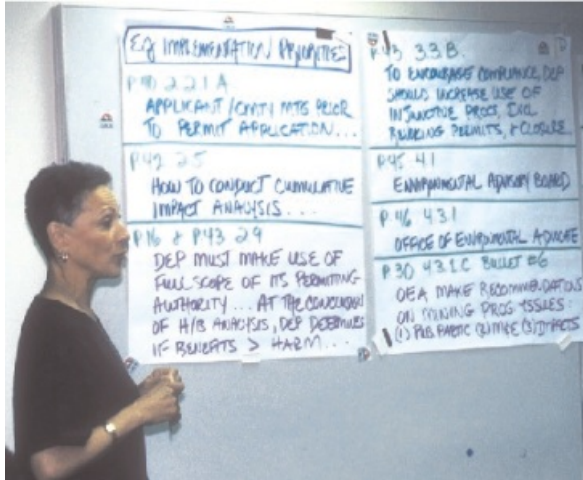 EJ IMPLEMENTATION PRIORITIES
2.2.1 A
APPLICANT/CMTY MTGS PRIOR
TO PERMIT APPLICATION...
P.42 2.5
HOW TO CONDUCT CUMULATIVE
IMPACT ANALYSIS...
P16 & P43 2.9
DEP MUST MAKE USE OF
FULL SCOPE OF ITS PERMITTING
AUTHORITY... AT THE CONCLUSION
OF H/B ANALYSIS, DEP DETERMINES
IF BENEFITS > HARM...
P.43 3.3.B.
TO ENCOURAGE COMPLIANCE, DEP
SHOULD INCREASE USE OF
INJUNCTIVE PROCS, INCL
PERMITS, & CLOSURE...
P.45 4.1
ENVIRONMENTAL ADVISORY BOARD
P.46 4.3.1
OFFICE OF ENVIRONMENTAL ADVOCATE
P.30 4.3.1.C BULLET #6
OEA MAKE RECOMMENDATIONS
ON MINING PROG ISSUES:
(1) PUB PARTIC (3) IMPACTS